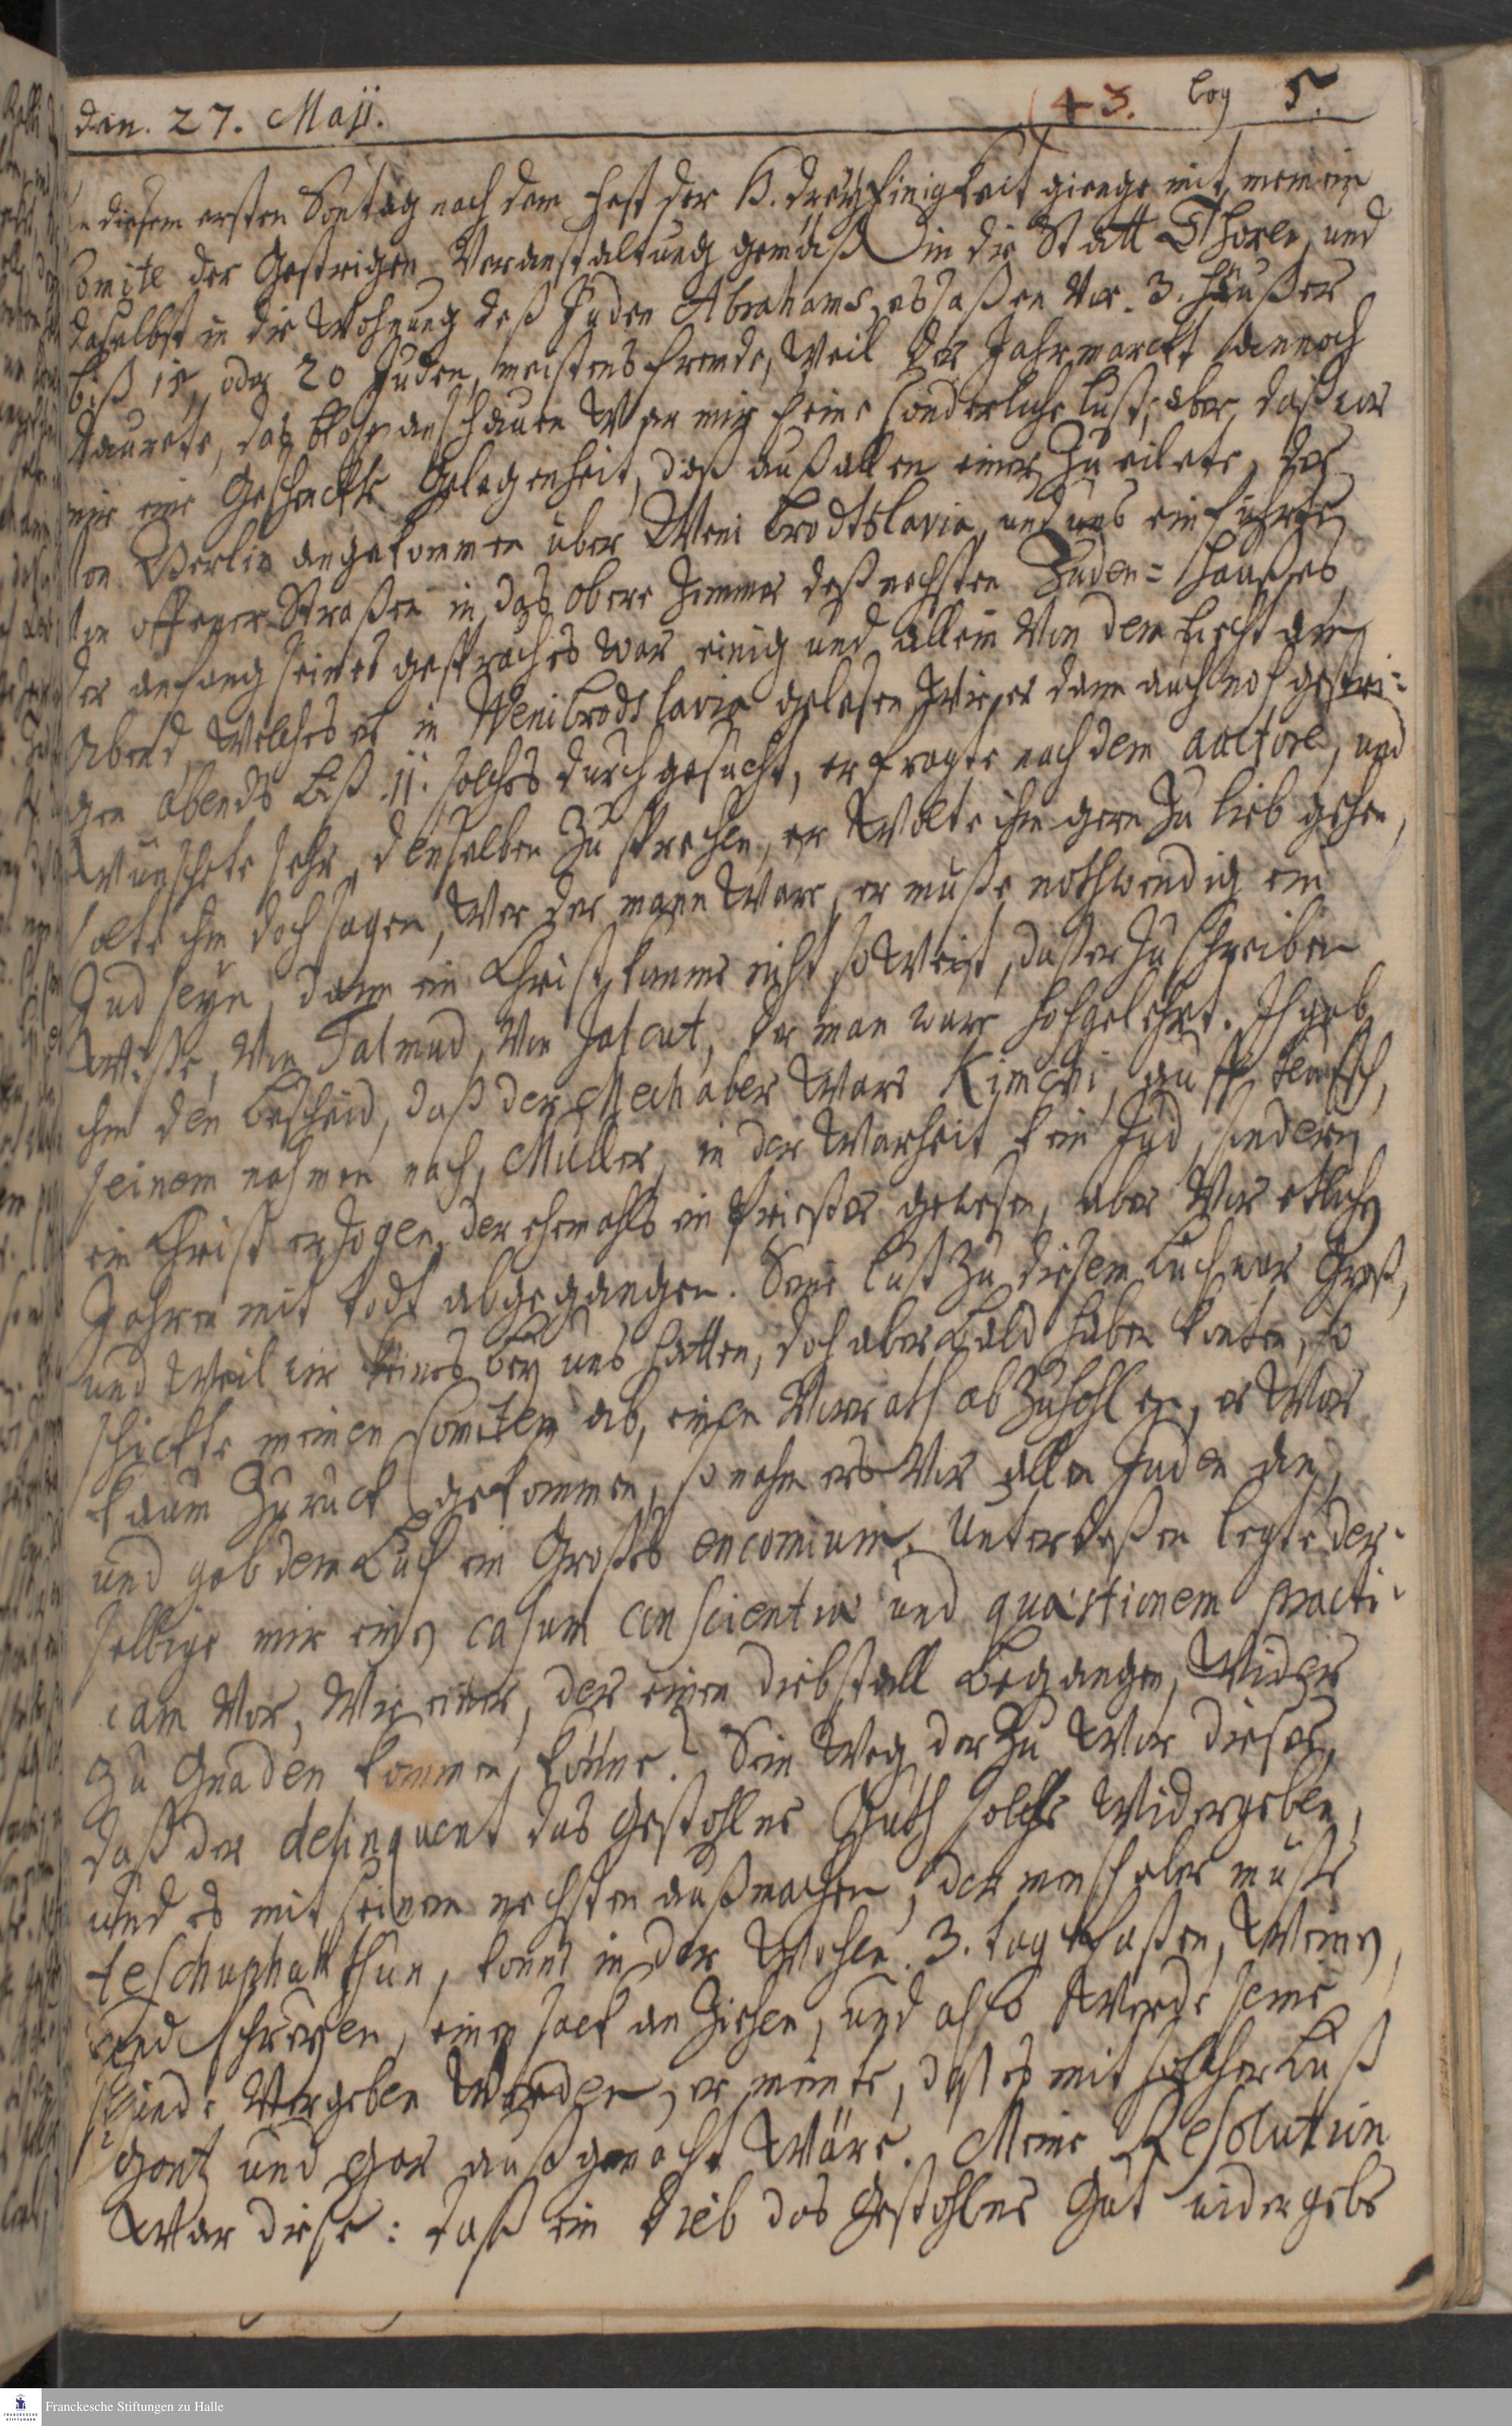 den. 27. Maji. (43. Log 5.
An diesem ersten Sontag nach dem Fest der H. dreyfinigkeit gienge mit meinem
Comite der Gestrigen Veranstaltung gemäß in die Statt Thoren, und
daselbst in die Wohnung deß Juden Abrahams, es saßen vor 3. Häußer
biß 15, oder 20 Juden, meistens fremde, weil der Jahrmarckt annoch
daurete, das bloße anschauen war mir keine sonderliche lust, aber daß war
mir eine Geschenckte Gelegenheit, daß auß allen einer Zu eilete, der
von Berlin angekommen über Weni brodtslavia, und uns einführte
von offener Straßen in das obere Zimmer deß nechsten Juden=Haußes,
der anfang seines gesprächs war einig und allein Von dem Licht am
Abend, welches er in Wenibrodtslavia gelesen, wie er dann auch noch gestri=
gen abends biß 11. solches durchgesucht, er fragte nach dem auctore, und
wünschete sehr, denselben Zu sprechen, er wolte ihm gern Zu lieb gehen,
solte ihm doch sagen, wer der mann ware, er muße nothwendig ein
Jud seyn, dann ein Christ komme nicht so weit, daß er Zu schreiben
wiße, Von Talmud, Von Jalcut, der man ware hochgelehrt. Ich gab
ihm den bescheid, daß der Mechaber ware Kimchi, auff teutsch,
seinem nahmen nach, Müller, in der Warheit kein Jud, sondern
ein Christ erzogen, der ehemahls ein Priester gewesen, aber Vor etlichen
Jahren mit todt abgegangen. Seine lust Zu diesem buch war Groß,
und weil wir keines bey uns hatten, doch aber bald haben konten, so
schickte meinen Comitem ab, einen Vorrath abZuhohlen, er war
kaum Zuruck gekommen, so nahm ers Vor allen Juden an,
und gab dem buch ein Großes encomium. Unterdeßen legte der=
selbige mir einen casum conscientiæ und quæstionem practi=
cam Vor, Wie einer, der einen diebstall begangen, wider
Zu Gnaden kommen könne? Sein Weg darZu war dieser,
daß der delinquent das Gestohlne Guth solle widergeben,
und es mit seinem nechsten außmachen, der mensch aber müste
teschuphah thun, könne in der Wochen 3. tag fasten, weinen,
und schreyen, einen sack anziehen, und also werde seine
Sünde Vergeben werden, er meinte, daß es mit solcher buß
gantz und gar außgemacht wäre. Meine Resolution
war diese: daß ein Dieb das Gestohlne Gut widergebe
Franckesche Stiftungen zu Halle